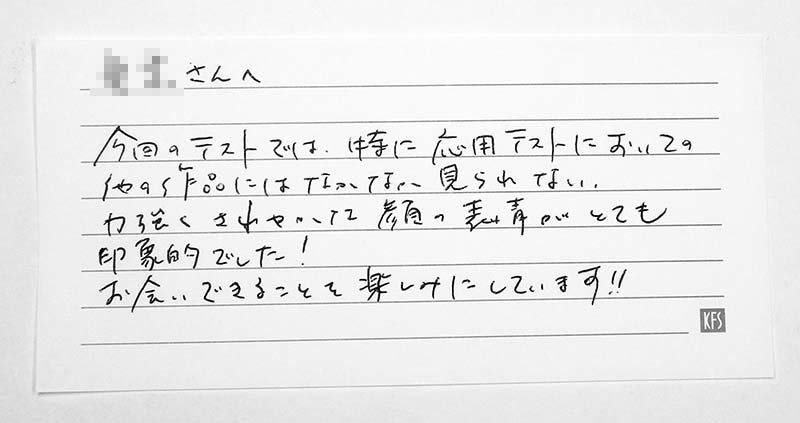 さんへ
今回のテストでは、特に応用テストにおいての
他の作品にはなかなか見られない、
力強くさわやかな顔の表情がとても
印象的でした！
お会いできることを楽しみにしています!!
KFS